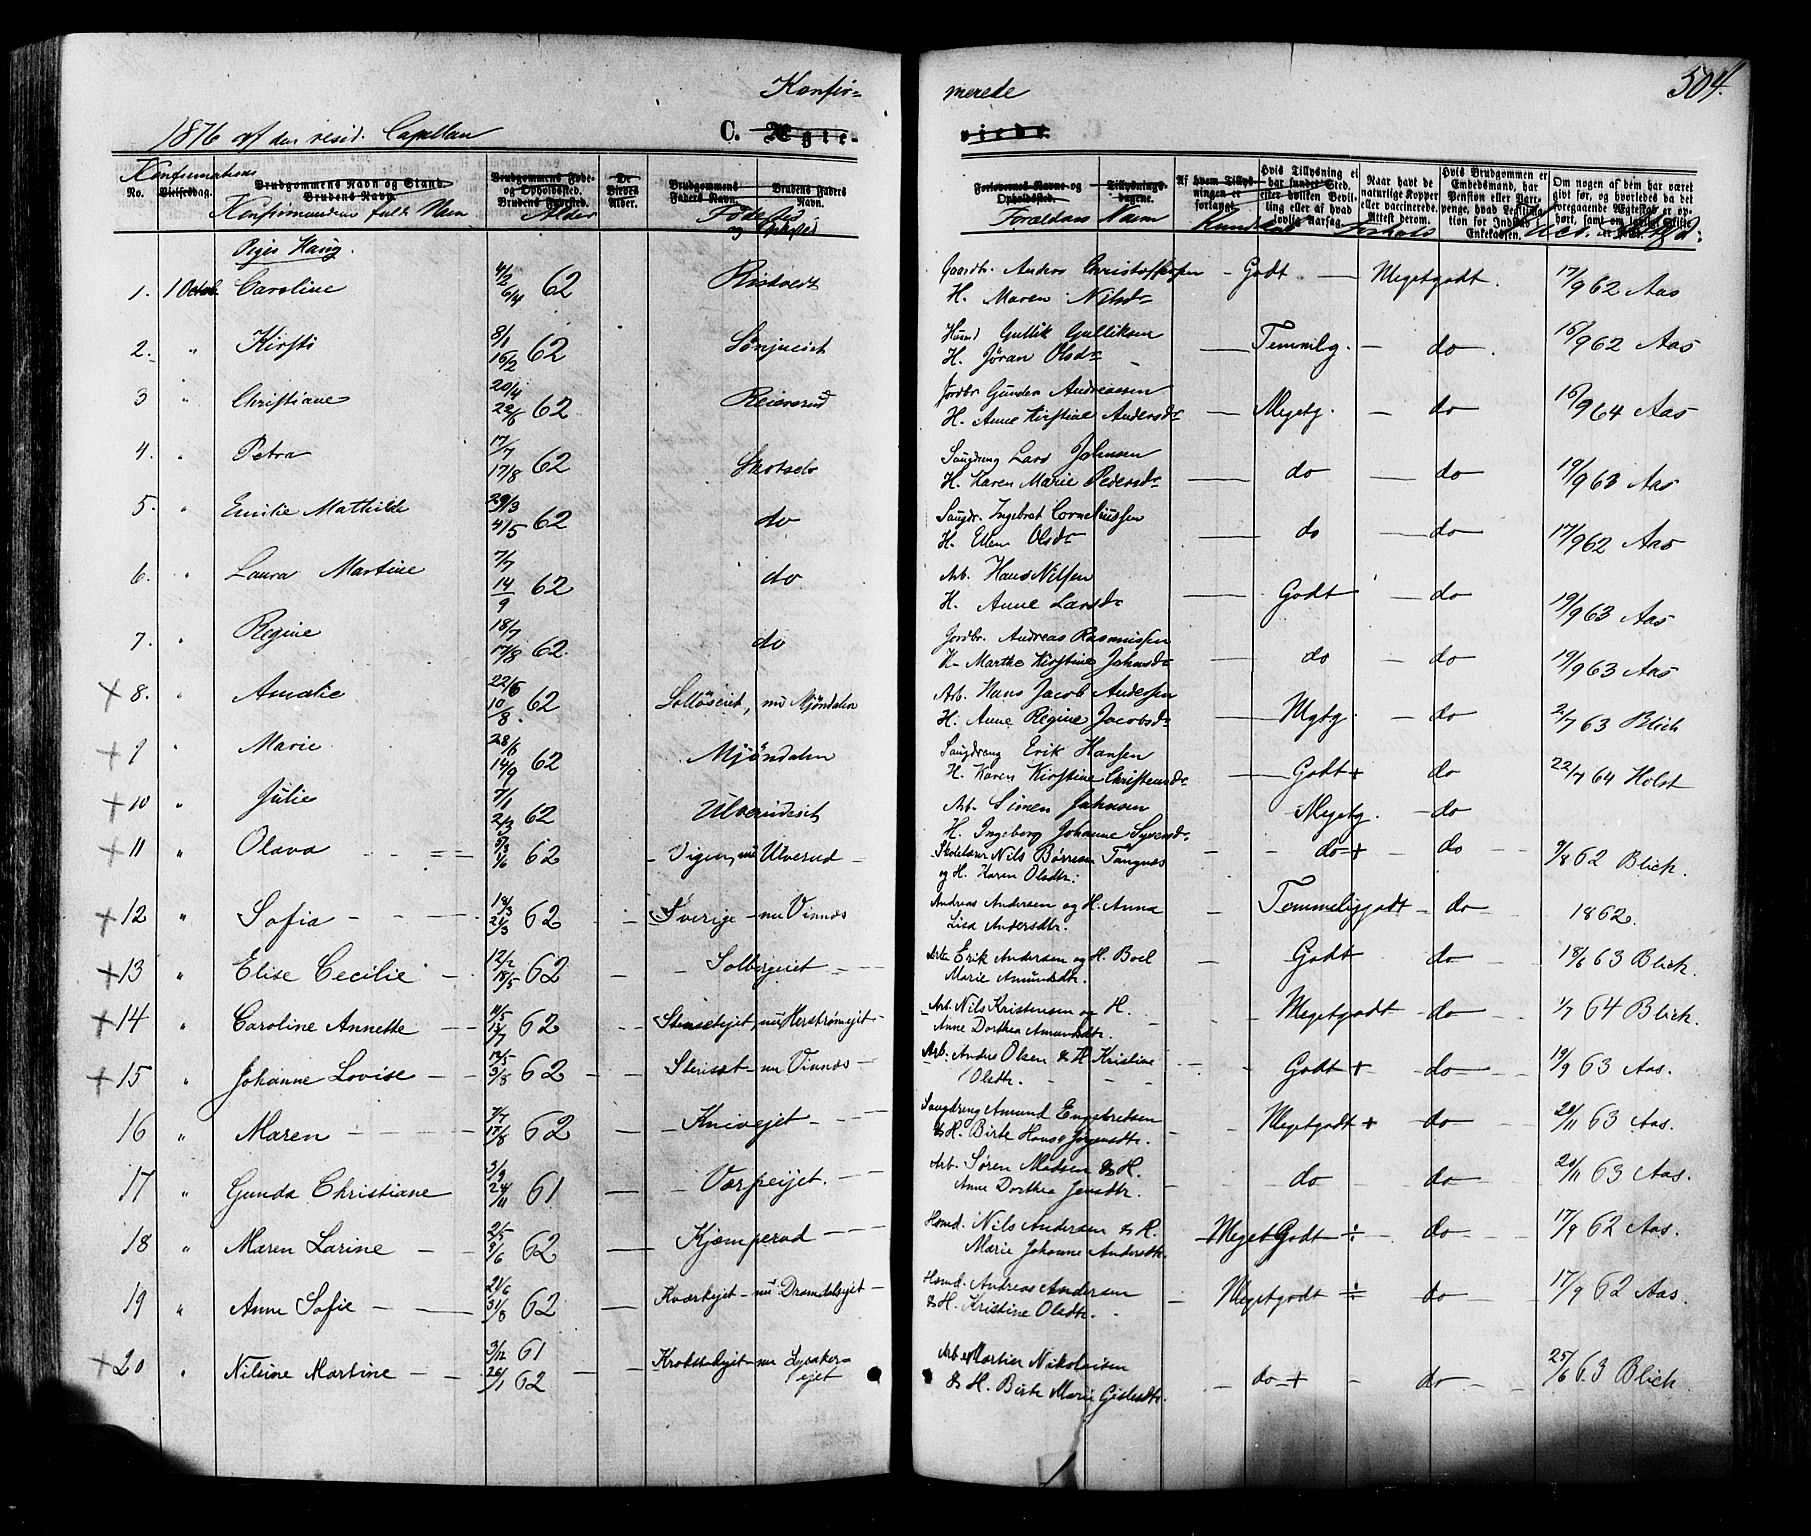 Konfir=
merede
504.
1876 af den resid. Capellan
C. Ægte=
viede.
Konfirmationens
No.
Vielsesdag.
Brudgommens Navn og Stand.
Brudens Navn.
Konfirmandens fulde Navn
Brudgommens Føde- og Opholdssted.
Brudens Fødested.
Alder
De Viedes Alder.
Brudgommens Faders Navn.
Brudens Faders Navn.
Fødested og Opholdssted
Forlovernes Navne og Opholdssted.
Forældres Navn
Tillysnings-dagene.
Af hvem Tillysningen er forlangt.
Kundskab
Hvis Tillysning ei har fundet Sted, efter hvilken Bevilling eller af hvad lovlig Aarsag.
Forhold
Naar havt de naturlige Kopper eller vaccinerede. Attest derom.
Hvis Brudgommen er Embedsmand, har Pension eller Vartpenge, hvad Legitimation for Indskud i Enkekassen.
Om nogen af dem har været gift før, og hvorledes da det foregaaende Ægteskab er ophørt, samt om lovligt Skifte er holdt.
Piger Haug.
1. 1 Octob. Caroline 4/2 6/4 62 Ristvedt Gaardbr. Anders Christoffersen H. Maren Nilsdr Godt Megetgodt. 17/9 62 Aas
2. " Kirsti 8/1 16/2 62 Sønjueiet Husmd Gullik Gulliksen H. Jøran Olsdr Temmlg. do 16/9 62 Aas
3 " Christiane 20/4 22/6 62 Reiersrud Jordbr. Gunder Andreassen H. Anne Kirstine Andersdr Megetg. do 16/9 64 Aas
4. " Petra 17/7 17/8 62 Skotselv Saugdreng Lars Johnsen H. Karen Marie Pedersdr do do 19/9 63 Aas
5. " Emilie Mathilde 29/3 4/5 62 do Saugdr. Ingebret Corneliussen H. Ellen Olsdr do do 17/9 62 Aas
6. " Laura Martine 7/7 14/9 62 do Arb. Hans Nilsen H. Anne Larsdr Godt do 19/9 63 Aas
7. " Regine 18/7 17/8 62. do Jordbr. Andreas Rasmussen H. Marthe Kirstine Johnsdr do do 19/9 63 Aas
+ 8. " Amalie 22/6 10/8. 62 Solløseiet, nu Mjøndalen Arb. Hans Jacob Andersen H. Anne Regine Jacobsdr Mgtg. do 2/7 63 Blich
+ 9 " Marie 28/6 14/9 62 Mjøndalen Saugdreng Erik Hansen H. Karen Kirstine Christensdr Godt + do 22/7 64 Holst
+ 10 " Julie 7/1 2/3 62 Ulverudeiet Arb. Simen Johnsen H. Ingeborg Johanne Syversdr Megetg. do
+ 11 " Olava 9/3 1/6 62 Vigen, nu Ulverud Skolelærer Nils Børresen Tangnæs og H. Karen Olsdtr: do + do 9/8 62 Blich.
+ 12 " Sofia 14/3 21/3 62 Sverige nu Vinnæs Andreas Andersen og H. Anna Lisa Andersdtr. Temmeliggodt do 1862.
+ 13 " Elise Cecilie 12/2 18/5 62 Solbergeiet Arb. Erik Andersen og H. Boel Marie Amundsdtr. Godt do 18/6 63 Blich.
+ 14 " Caroline Annette 11/5 13/7 62 Stensetejet, nu Herstrømejet Arb. Nils Kristensen og H. Anne Dorthea Amundsdtr. Megetgodt do 1/7 64 Blich.
+ 15 " Johanne Lovise 12/5 3/8 62 Stensæt nu Vinnæs Arb: Anders Olsen & H. Kristine Olsdtr. Godt + do 19/9 63 Aas.
16 " Maren 7/7 17/8 62 Knivejet Saugdreng Amund Engebretsen & H. Birte Hans Jørgensdtr. Megetgodt + do 20/11 63 Aas.
17 " Gunda Christiane 3/9 24/11 61 Varpeijet. Arb. Søren Madsen & H. Anne Dorthea Jensdtr. do do 20/11 63 Aas.
18 " Maren Larine 2/5 9/6 62 Kjæmperud Husmd. Nils Andersen & H. Marie Johanne Andersdtr. Meget Godt ÷ do 17/9 62 Aas.
19 " Anne Sofie 21/6 31/8 62 Kværkejet nu Dramdalsejet Husmd. Andreas Andersen & H. Kristine Olsdtr. Megetgodt ÷ do 17/9 62 Aas.
+ 20 " Nilsine Martine 3/12 61 26/1 62 Krokstadejet nu Lysakerejet Arb. Martin Nikolaisen & H. Birte Marie Gislesdtr. do + do 25/6 63 Blich